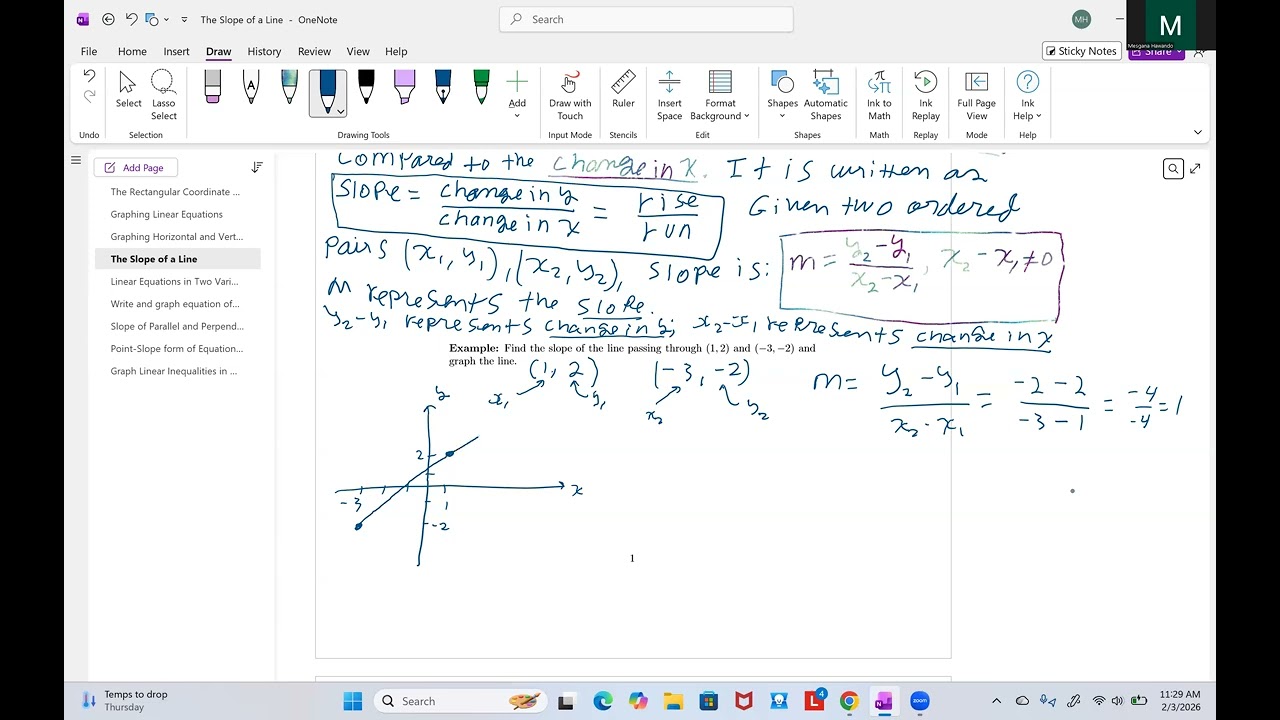 The Slope of a Line - OneNote
Search
MH
M
Mesgana Hawando
File Home Insert Draw History Review View Help
Sticky Notes
Share
Select
Lasso Select
Add
Draw with Touch
Ruler
Insert Space
Format Background
Shapes
Automatic Shapes
Ink to Math
Ink Replay
Full Page View
Ink Help
Undo
Selection
Drawing Tools
Input Mode
Stencils
Edit
Shapes
Math
Replay
Mode
Help
Add Page
The Rectangular Coordinate ...
Graphing Linear Equations
Graphing Horizontal and Vert...
The Slope of a Line
Linear Equations in Two Vari...
Write and graph equation of...
Slope of Parallel and Perpend...
Point-Slope form of Equation...
Graph Linear Inequalities in ...
compared to the change in x. It is written as
Slope = change in y / change in x = rise / run Given two ordered
pairs (x₁, y₁), (x₂, y₂), slope is: m = y₂ - y₁ / x₂ - x₁, x₂ - x₁ ≠ 0
m represents the slope.
y₂ - y₁ represents change in y; x₂ - x₁ represents change in x
Example: Find the slope of the line passing through (1, 2) and (−3, −2) and
graph the line.
(1, 2) (-3, -2)
x₁ y₁ x₂ y₂
m = y₂ - y₁ / x₂ - x₁ = -2 - 2 / -3 - 1 = -4 / -4 = 1
y
2
x
-3 1
-2
1
Temps to drop
Thursday
Search
4
zoom
11:29 AM
2/3/2026